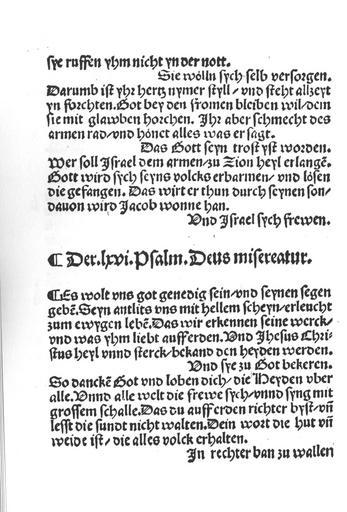 sye ruffen yhm nicht yn der nott.
Sie wölln sych selb versorgen.
Darumb ist yhr hertz nymer styll / und steht allzeyt
yn forchten. Got bey den fromen bleiben wil / dem
sie mit glawben horchen. Ihr aber schmecht des
armen rad / und hönet alles was er sagt.
Das Got seyn trost yst worden.
Wer soll Israel dem armen / zu Zion heyl erlangē.
Gott wird sych seyns volcks erbarmen / und lösen
die gefangen. Das wirt er thun durch seynen son /
dauon wird Jacob wonne han.
Vnd Israel sych frewen.
¶ Der. lxvi. Psalm. Deus misereatur.
¶ Es wolt vns got genedig sein / vnd seynen segen
gebē. Seyn antlits vns mit hellem scheyn / erleucht
zum ewygen lebē. Das wir erkennen seine werck /
vnd was yhm liebt aufferden. Vnd Jhesus Chri-
stus heyl vnnd sterck / bekand den heyden werden.
Vnd sye zu Got bekeren.
So danckē Got vnd loben dich / die Heyden vber
alle. Vnnd alle welt die frewe sych / vnnd syng mit
grossem schalle. Das du aufferden richter byst / vñ
lesst die sundt nicht walten. Dein wort die hut vñ
weide ist / die alles volck erhalten.
In rechter ban zu wallen